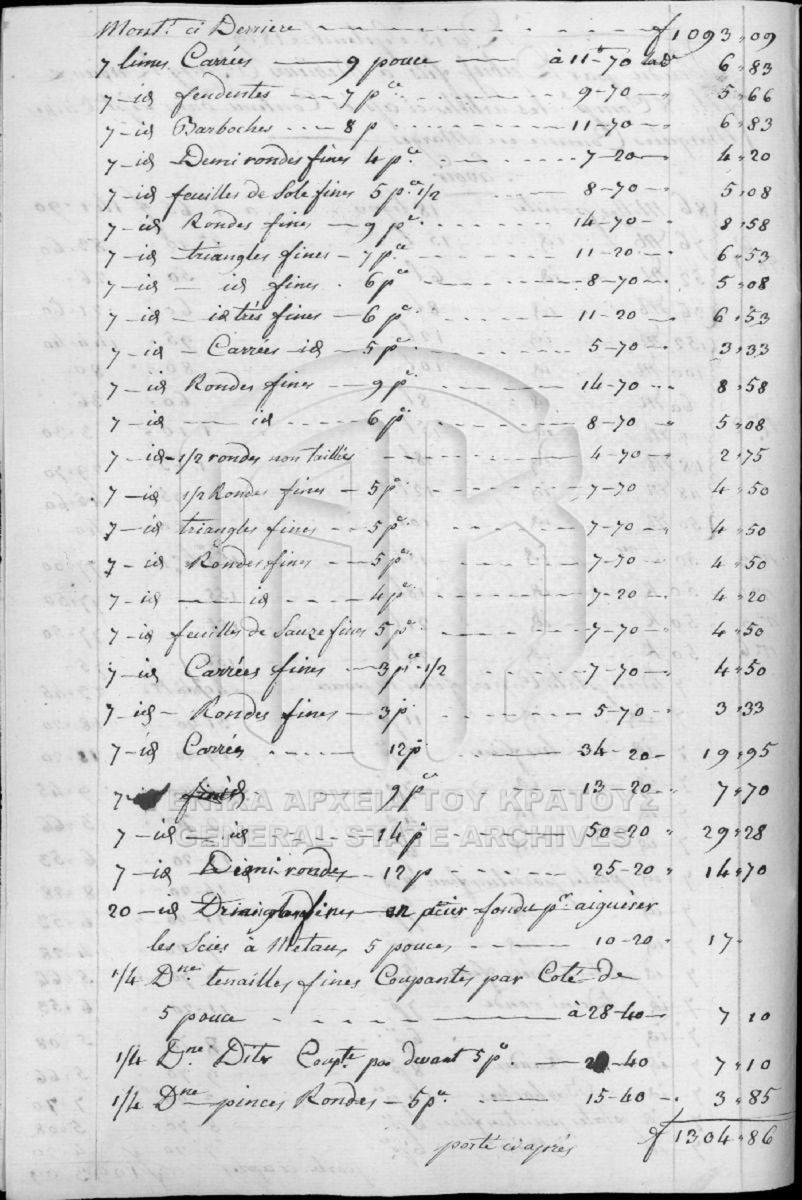 Mont.t ci Derriere - - - - - - - f 1093 " 09
7 limes Carrées — 9 pouce — à 11"-70 la d.e 6 " 83
7 - id fendentes - - - 7 p.ce - - - - 9-70 - " 5 " 66
7 - id Barboches - - - 8 p - - - - 11-70 - " 6 " 83
7 - id Demi rondes fines 4 p.ce - - - 7-20 - " 4 " 20
7 - id feuilles de Sole fines 5 p.ce 1/2 - - - 8-70 - " 5 " 08
7 - id Rondes fines - 9 p.ce - - - 14-70 - " 8 " 58
7 - id triangles fines - 7 p.ce - - - 11-20 - " 6 " 53
7 - id — id fines . 6 p.ce - - - 8-70 - " 5 " 08
7 - id — id très fines - 6 p.ce - - - 11-20 - " 6 " 53
7 - id - Carrées - id - 5 p.ce - - - 5-70 - " 3 " 33
7 - id Rondes fines - 9 p.ce - - - 14-70 - " 8 " 58
7 - id — id - - - - 6 p.ce - - - 8-70 " 5 " 08
7 - id - 1/2 rondes non taillées - - - 4-70 - " 2 " 75
7 - id 1/2 Rondes fines - 5 p.ce - - - 7-70 " 4 " 50
7 - id triangles fines - - 5 p.ce - - - 7-70 - " 4 " 50
7 - id Rondes fines - - 5 p.ce - - - 7-70 - " 4 " 50
7 - id — id - - - - 4 p.ce - - - 7-20 - " 4 " 20
7 - id feuilles de Sauze fines 5 p.ce - - - 7-70 - " 4 " 50
7 - id Carrées fines — 3 p.ce 1/2 - - - 7-70 - " 4 " 50
7 - id - Rondes fines - 3 p. - - - 5-70 - " 3 " 33
7 - id Carrées - - - - 12 p. - - - 34-20 - " 19 " 95
7 - fines 9 p.ce - - - 13-20 " 7 " 70
7 - id — id - - - 14 p. - - - 50-20 " 29 " 28
7 - id Demi rondes - 12 p - - - 25-20 " 14 " 70
20 - id fines en acier fondu p.r aiguiser
les Scies à Metaux 5 pouces - - - 10-20 " 17 "
1/4 D.ne tenailles fines Coupantes par Coté de
5 pouce - - - - à 28-40 - " 7 10
1/4 D.ne Dites Coup.te par devant 5 p.ce - - 28-40 7 " 10
1/4 D.ne pinces Rondes - 5 p.ce - - - 15-40 - " 3 " 85
porté ci après f 1304 " 86
ΓΕΝΙΚΑ ΑΡΧΕΙΑ ΤΟΥ ΚΡΑΤΟΥΣ
GENERAL STATE ARCHIVES